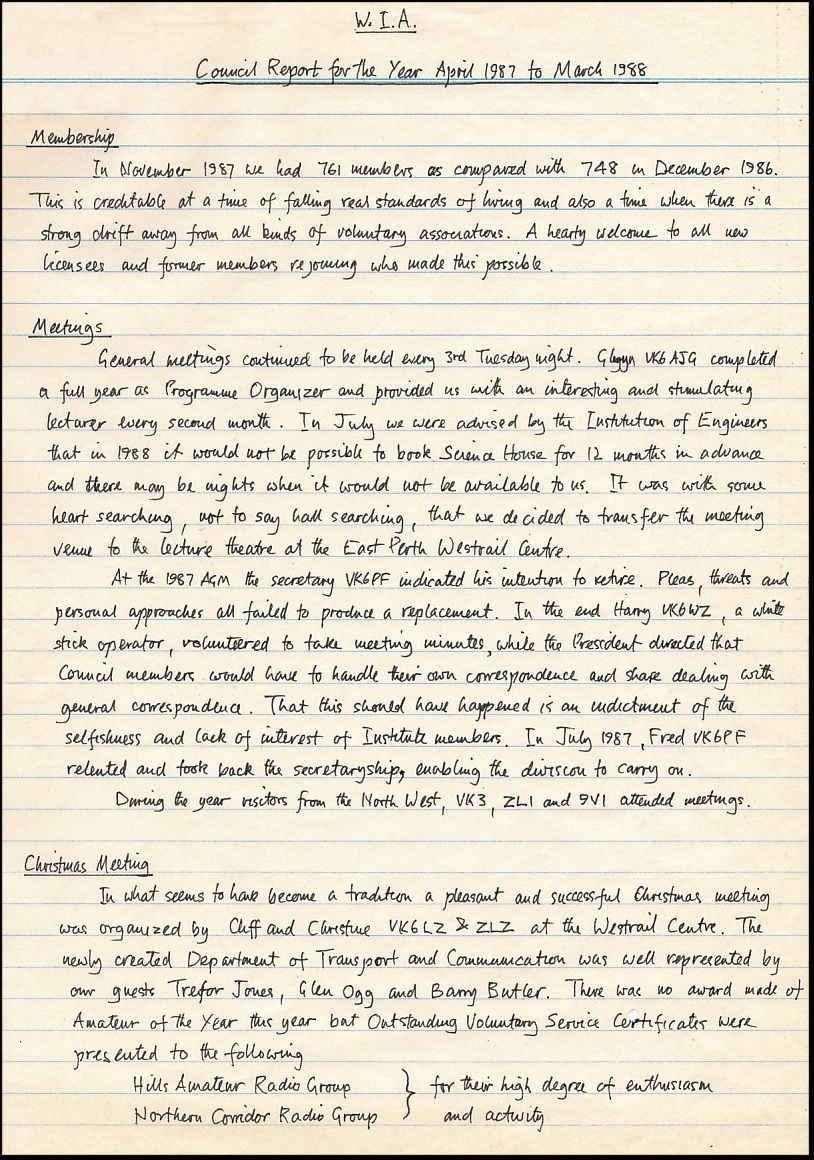 W.I.A.
Council Report for the Year April 1987 to March 1988
Membership
In November 1987 we had 761 members as compared with 748 in December 1986.
This is creditable at a time of falling real standards of living and also a time when there is a
strong drift away from all kinds of voluntary associations. A hearty welcome to all new
licensees and former members rejoining who made this possible.
Meetings
General meetings continued to be held every 3rd Tuesday night. Glynn VK6AJG completed
a full year as Programme Organizer and provided us with an interesting and stimulating
lecturer every second month. In July we were advised by the Institution of Engineers
that in 1988 it would not be possible to book Science House for 12 months in advance
and there may be nights when it would not be available to us. It was with some
heart searching, not to say hall searching, that we decided to transfer the meeting
venue to the lecture theatre at the East Perth Westrail Centre.
At the 1987 AGM the secretary VK6PF indicated his intention to retire. Pleas, threats and
personal approaches all failed to produce a replacement. In the end Harry VK6WZ, a white
stick operator, volunteered to take meeting minutes, while the President directed that
Council members would have to handle their own correspondence and share dealing with
general correspondence. That this should have happened is an indictment of the
selfishness and lack of interest of Institute members. In July 1987, Fred VK6PF
relented and took back the secretaryship, enabling the division to carry on.
During the year visitors from the North West, VK3, ZL1 and 9V1 attended meetings.
Christmas Meeting
In what seems to have become a tradition a pleasant and successful Christmas meeting
was organized by Cliff and Christine VK6LZ & ZLZ at the Westrail Centre. The
newly created Department of Transport and Communication was well represented by
our guests Trefor Jones, Glen Ogg and Barry Butler. There was no award made of
Amateur of the Year this year but Outstanding Voluntary Service Certificates were
presented to the following
Hills Amateur Radio Group } for their high degree of enthusiasm
Northern Corridor Radio Group } and activity